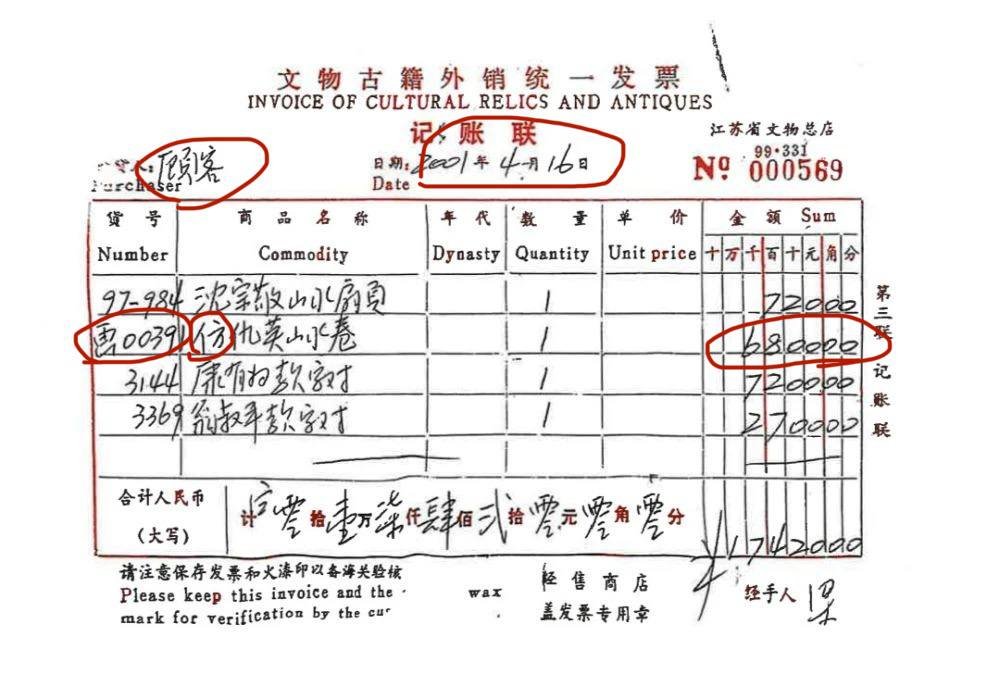 文物古籍外销统一发票
INVOICE OF CULTURAL RELICS AND ANTIQUES
记账联
江苏省文物总店
顾客
Purchaser
日期: 2001年4月16日
Date
99·331
Nº 000569
货号 商品名称 年代 数量 单价 金额 Sum
Number Commodity Dynasty Quantity Unit price 十万千百十元角分
97-984 沈宗敬山水扇页 1 72000
画0039 仿仇英山水卷 1 680000
3144 康有为款字对 1 720000
3369 翁叔平款字对 1 270000
第三联 记账联
合计人民币
(大写)
计 零拾壹万柒仟肆佰贰拾零元零角零分
¥1742000
请注意保存发票和火漆印以备海关验核
Please keep this invoice and the wax
mark for verification by the
经售商店
盖发票专用章
经手人